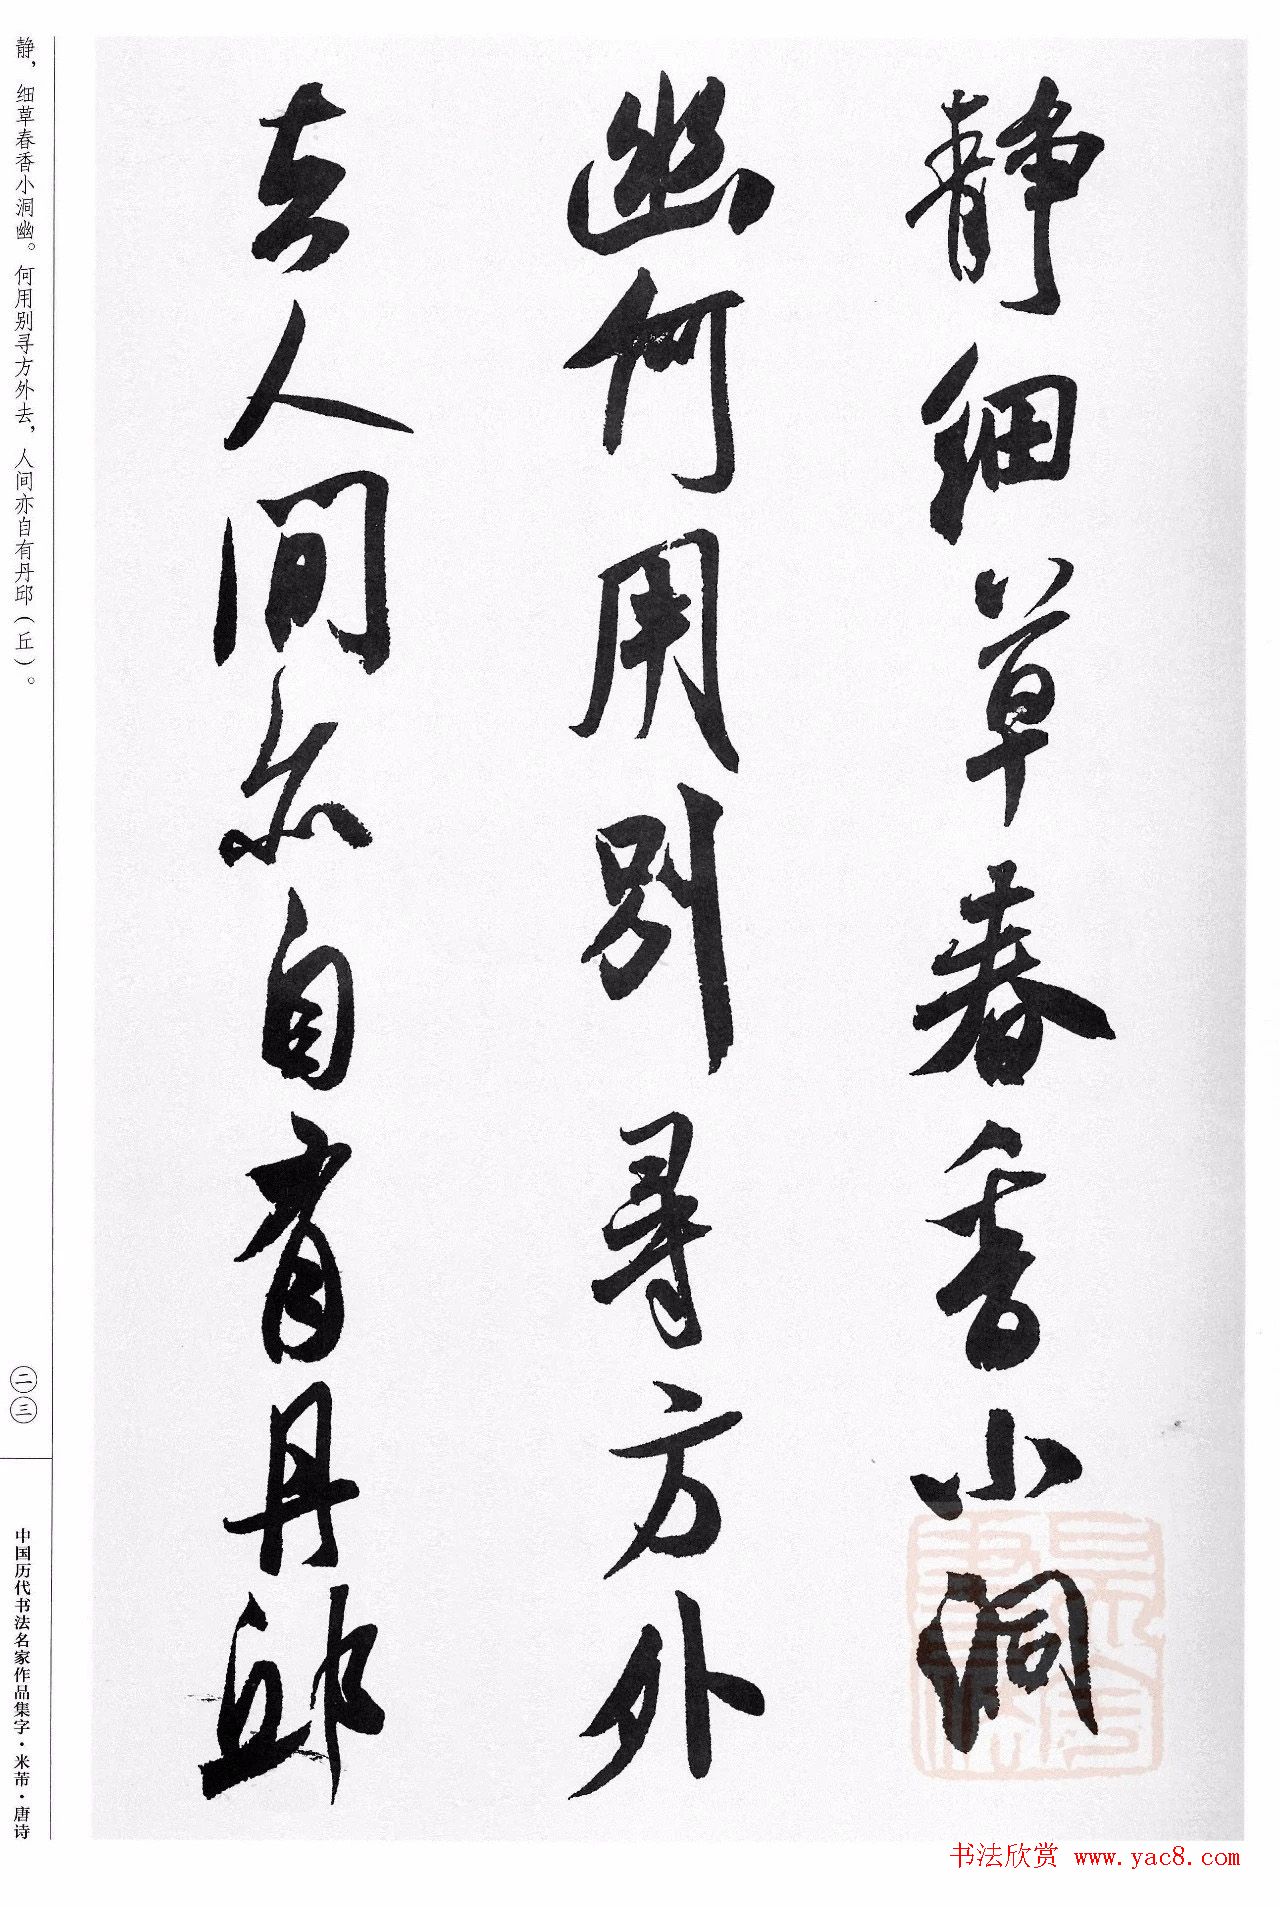 静細草春香小洞
幽何用別尋方外
去人間亦自有丹邱
静，细草春香小洞幽。何用别寻方外去，人间亦自有丹邱（丘）。
二三
中国历代书法名家作品集字·米芾·唐诗
书法欣赏 www.yac8.com